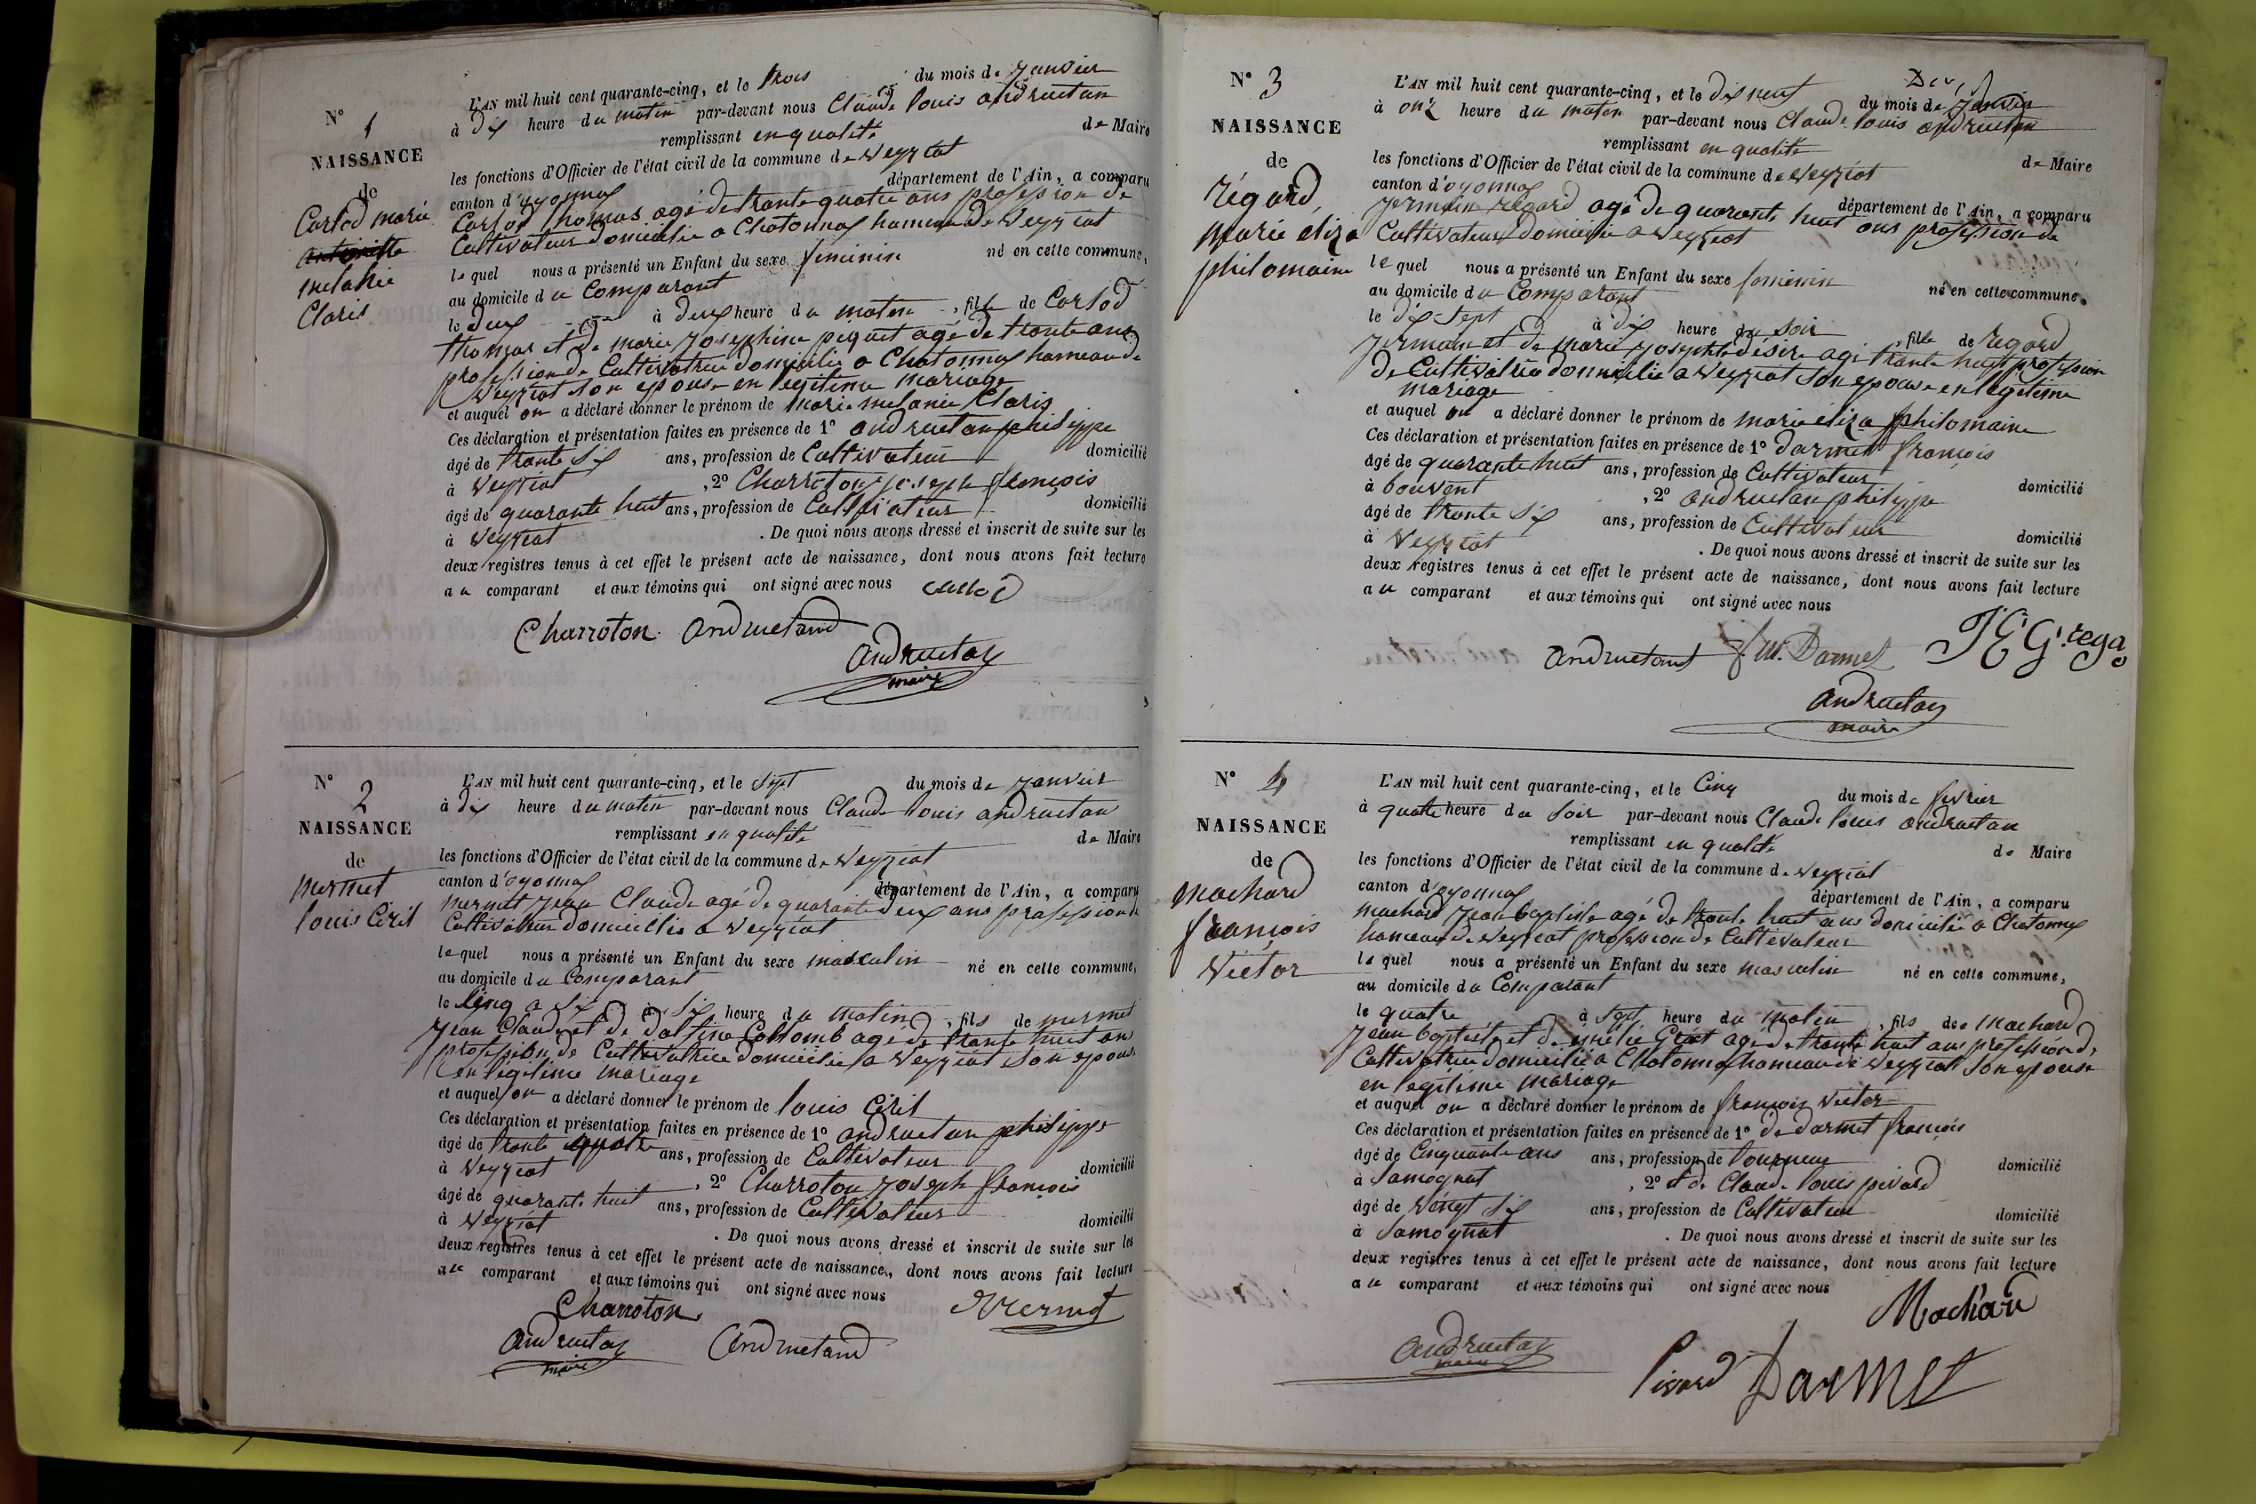 N° 1
NAISSANCE
de
Corlod marie
melanie
Claris
L'AN mil huit cent quarante-cinq, et le trois du mois de janvier
à dix heure du matin par-devant nous Claude louis andruetan
remplissant en qualité de Maire
les fonctions d'Officier de l'état civil de la commune de Veyziat
canton d'oyonnax département de l'Ain, a comparu
Corlod thomas agé de trante quatre ans profession de
Cultivateur domicilié a Chatonnax hameau de Veyziat
lequel nous a présenté un Enfant du sexe féminin né en cette commune,
au domicile du Comparant
le deux à deux heure du matin, fille de Corlod
thomas et de marie josephine piquet agé de trante ans
profession de Cultivatrice domicilié a Chatonnax hameau de
Veyziat son epouse en légitime mariage
et auquel on a déclaré donner le prénom de marie melanie Claris
Ces déclaration et présentation faites en présence de 1° andruetan philippe
âgé de trante six ans, profession de Cultivateur domicilié
à Veyziat , 2° Charroton joseph françois
âgé de quarante huit ans, profession de Cultivateur domicilié
à Veyziat . De quoi nous avons dressé et inscrit de suite sur les
deux registres tenus à cet effet le présent acte de naissance, dont nous avons fait lecture
au comparant et aux témoins qui ont signé avec nous Corlod
Charroton andruetand
andruetan
maire
N° 2
NAISSANCE
de
mermet
louis Ciril
L'AN mil huit cent quarante-cinq, et le sept du mois de janvier
à dix heure du matin par-devant nous Claude louis andruetan
remplissant en qualité de Maire
les fonctions d'Officier de l'état civil de la commune de Veyziat
canton d'oyonnax département de l'Ain, a comparu
mermet jean Claude agé de quarante deux ans profession de
Cultivateur domicillié a Veyziat
lequel nous a présenté un Enfant du sexe masculin né en cette commune,
au domicile du Comparant
le Cinq à six heure du matin, fils de mermet
jean Claude et de Collomb agé de trante huit ans
profession de Cultivatrice domiciliée a Veyziat son epouse
en légitime mariage
et auquel on a déclaré donner le prénom de louis Ciril
Ces déclaration et présentation faites en présence de 1° andruetan philippe
âgé de trante quatre ans, profession de Cultivateur domicilié
à Veyziat , 2° Charroton joseph françois
âgé de quarante huit ans, profession de Cultivateur domicilié
à Veyziat . De quoi nous avons dressé et inscrit de suite sur les
deux registres tenus à cet effet le présent acte de naissance, dont nous avons fait lecture
au comparant et aux témoins qui ont signé avec nous
Charroton Mermet
andruetan andruetand
maire
N° 3
NAISSANCE
de
régard
marie eliza
philomaine
L'AN mil huit cent quarante-cinq, et le dix neuf du mois de janvier
à onz heure du matin par-devant nous Claude louis andruetan
remplissant en qualité de Maire
les fonctions d'Officier de l'état civil de la commune de Veyziat
canton d'oyonnax département de l'Ain, a comparu
jermain régard agé de quarante huit ans profession de
Cultivateur domicilié a Veyziat
lequel nous a présenté un Enfant du sexe féminin né en cette commune.
au domicile du Comparant
le dix-sept à dix heure du soir, fille de regard
jermain et de marie josephte désire agé trante huit profession
de Cultivatrice domicilié a Veyziat son epouse en légitime
mariage
et auquel on a déclaré donner le prénom de marie eliza philomaine
Ces déclaration et présentation faites en présence de 1° darmet françois
âgé de quarante huit ans, profession de Cultivateur domicilié
à bouvent , 2° andruetan philippe
âgé de trante six ans, profession de Cultivateur domicilié
à Veyziat . De quoi nous avons dressé et inscrit de suite sur les
deux registres tenus à cet effet le présent acte de naissance, dont nous avons fait lecture
au comparant et aux témoins qui ont signé avec nous
andruetand Darmet J E G rega
andruetan
maire
N° 4
NAISSANCE
de
machard
françois
Victor
L'AN mil huit cent quarante-cinq, et le Cinq du mois de février
à quatre heure du soir par-devant nous Claude louis andruetan
remplissant en qualité de Maire
les fonctions d'Officier de l'état civil de la commune de Veyziat
canton d'oyonnax département de l'Ain, a comparu
machard jean baptiste agé de trante huit ans domicilié a Chatonnax
hameau de Veyziat profession de Cultivateur
lequel nous a présenté un Enfant du sexe masculin né en cette commune,
au domicile du Comparant
le quatre à sept heure du matin, fils de machard
jean baptiste et de emélie agé de trante huit ans profession de
Cultivatrice domicilié a Chatonnax hameau de Veyziat son epouse
en légitime mariage
et auquel on a déclaré donner le prénom de françois Victor
Ces déclaration et présentation faites en présence de 1° de darmet françois
âgé de Cinquante ans ans, profession de tourneur domicilié
à Samognat , 2° et de Claude louis pivard
âgé de vingt six ans, profession de Cultivateur domicilié
à Samognat . De quoi nous avons dressé et inscrit de suite sur les
deux registres tenus à cet effet le présent acte de naissance, dont nous avons fait lecture
au comparant et aux témoins qui ont signé avec nous
Machard
andruetan
maire
Pivard Darmet